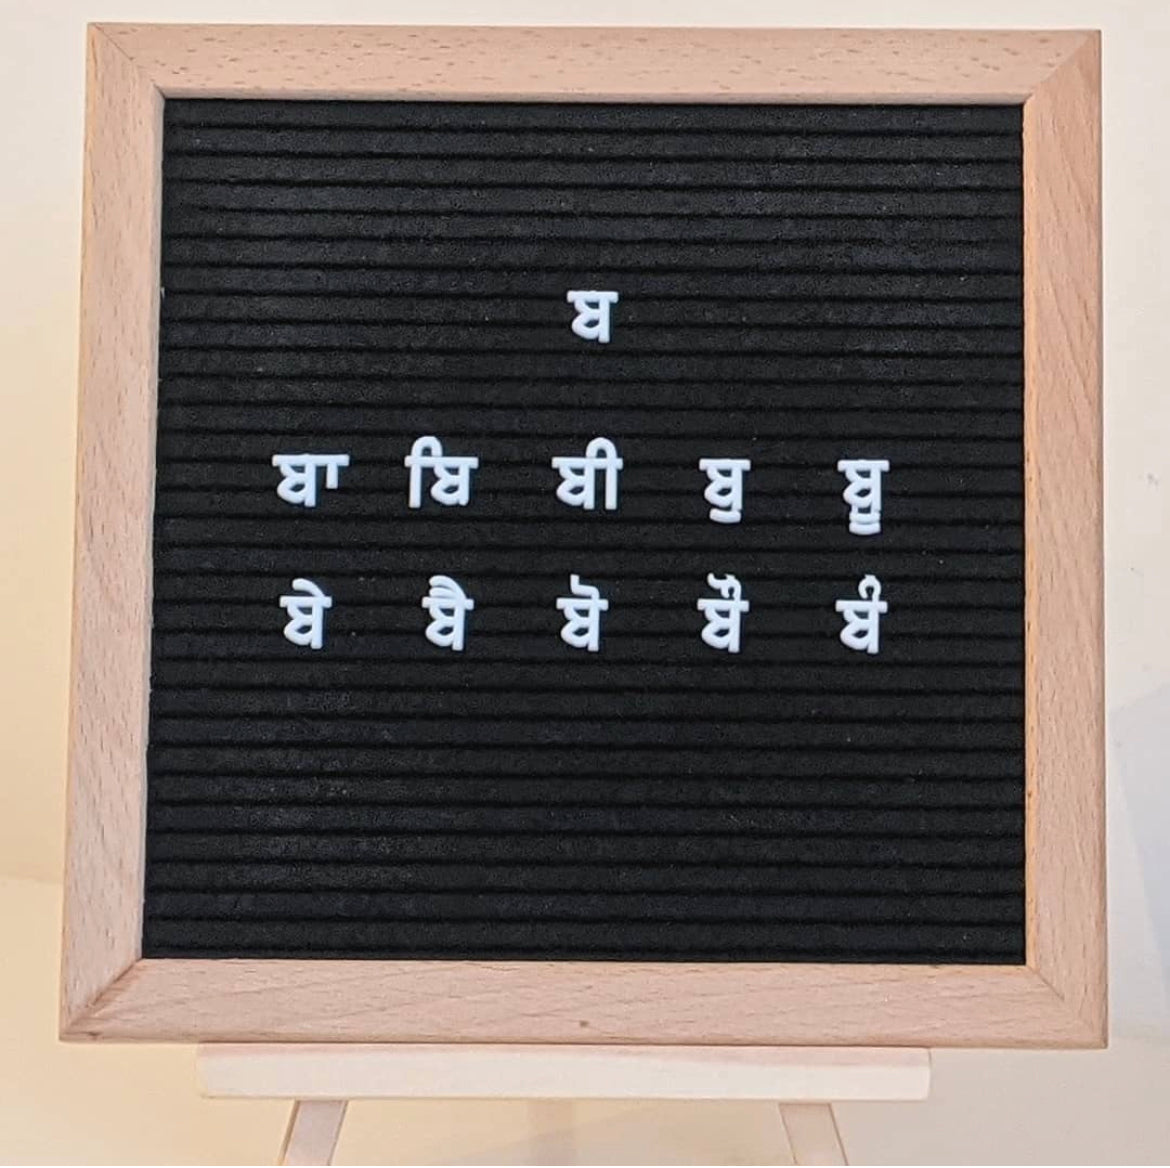 ਬ
ਬਾ ਬਿ ਬੀ ਬੁ ਬੂ
ਬੇ ਬੈ ਬੋ ਬੌ ਬੰ